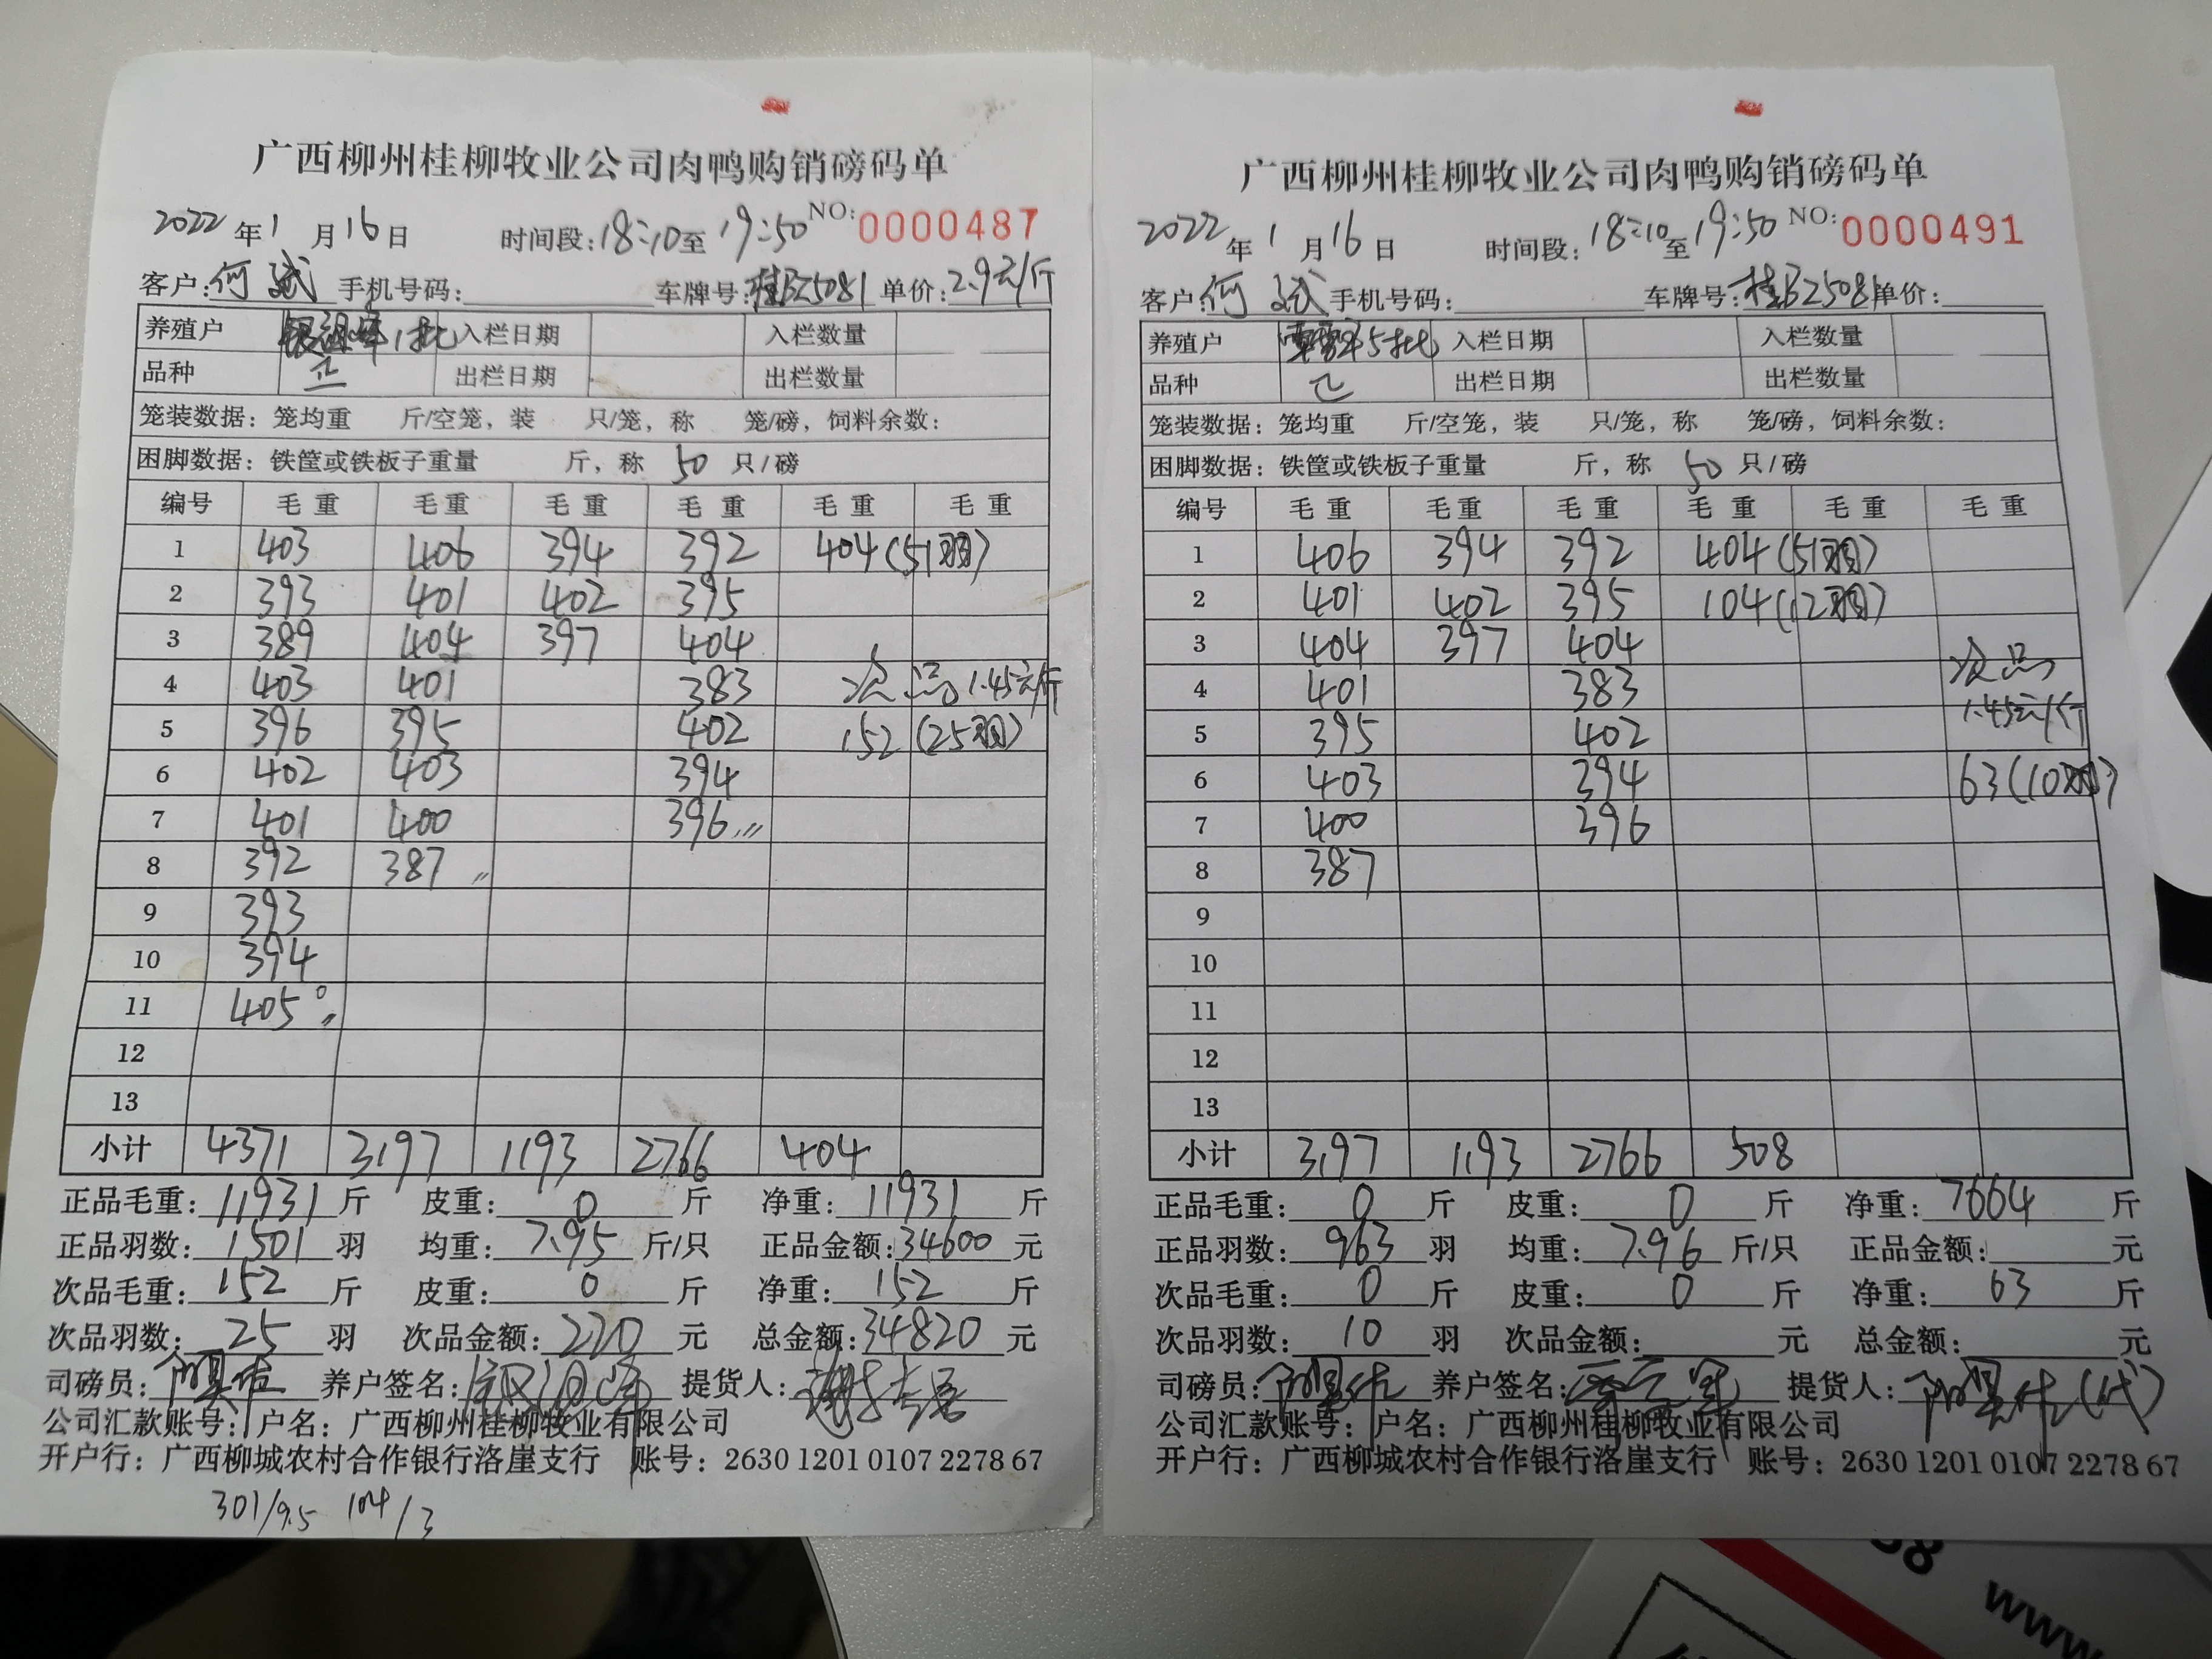 广西柳州桂柳牧业公司肉鸭购销磅码单
2022年1月16日 时间段:18:10至19:50 NO:0000487
客户:何斌 手机号码: 车牌号:桂BZ5081 单价:2.9元/斤
养殖户 1批 入栏日期 入栏数量
品种 正 出栏日期 出栏数量
笼装数据:笼均重 斤/空笼,装 只/笼,称 笼/磅,饲料余数:
困脚数据:铁筐或铁板子重量 斤,称 50 只/磅
编号 毛重 毛重 毛重 毛重 毛重 毛重
1 403 406 394 392 404(51羽)
2 393 401 402 395
3 389 404 397 404
4 403 401 383 次品 1.45元/斤
5 396 395 402 152 (25羽)
6 402 403 394
7 401 400 396
8 392 387
9 393
10 394
11 405
12
13
小计 4371 3197 1193 2766 404
正品毛重:11931斤 皮重:0斤 净重:11931斤
正品羽数:1501羽 均重:7.95斤/只 正品金额:34600元
次品毛重:152斤 皮重:0斤 净重:152斤
次品羽数:25羽 次品金额:220元 总金额:34820元
司磅员: 养户签名: 提货人:
公司汇款账号:户名:广西柳州桂柳牧业有限公司
开户行:广西柳城农村合作银行洛崖支行 账号:2630 1201 0107 2278 67
301/9.5 104/3
广西柳州桂柳牧业公司肉鸭购销磅码单
2022年1月16日 时间段:18:10至19:50 NO:0000491
客户:何斌 手机号码: 车牌号:桂BZ5081 单价:
养殖户 5批 入栏日期 入栏数量
品种 出栏日期 出栏数量
笼装数据:笼均重 斤/空笼,装 只/笼,称 笼/磅,饲料余数:
困脚数据:铁筐或铁板子重量 斤,称 50 只/磅
编号 毛重 毛重 毛重 毛重 毛重 毛重
1 406 394 392 404(51羽)
2 401 402 395 104(12羽)
3 404 397 404 次品
4 401 383 1.45元/斤
5 395 402
6 403 394 63(10羽)
7 400 396
8 387
9
10
11
12
13
小计 3197 1193 2766 508
正品毛重:0斤 皮重:0斤 净重:7664斤
正品羽数:963羽 均重:7.96斤/只 正品金额: 元
次品毛重:0斤 皮重:0斤 净重:63斤
次品羽数:10羽 次品金额: 元 总金额: 元
司磅员: 养户签名: 提货人: (代)
公司汇款账号:户名:广西柳州桂柳牧业有限公司
开户行:广西柳城农村合作银行洛崖支行 账号:2630 1201 0107 2278 67
www